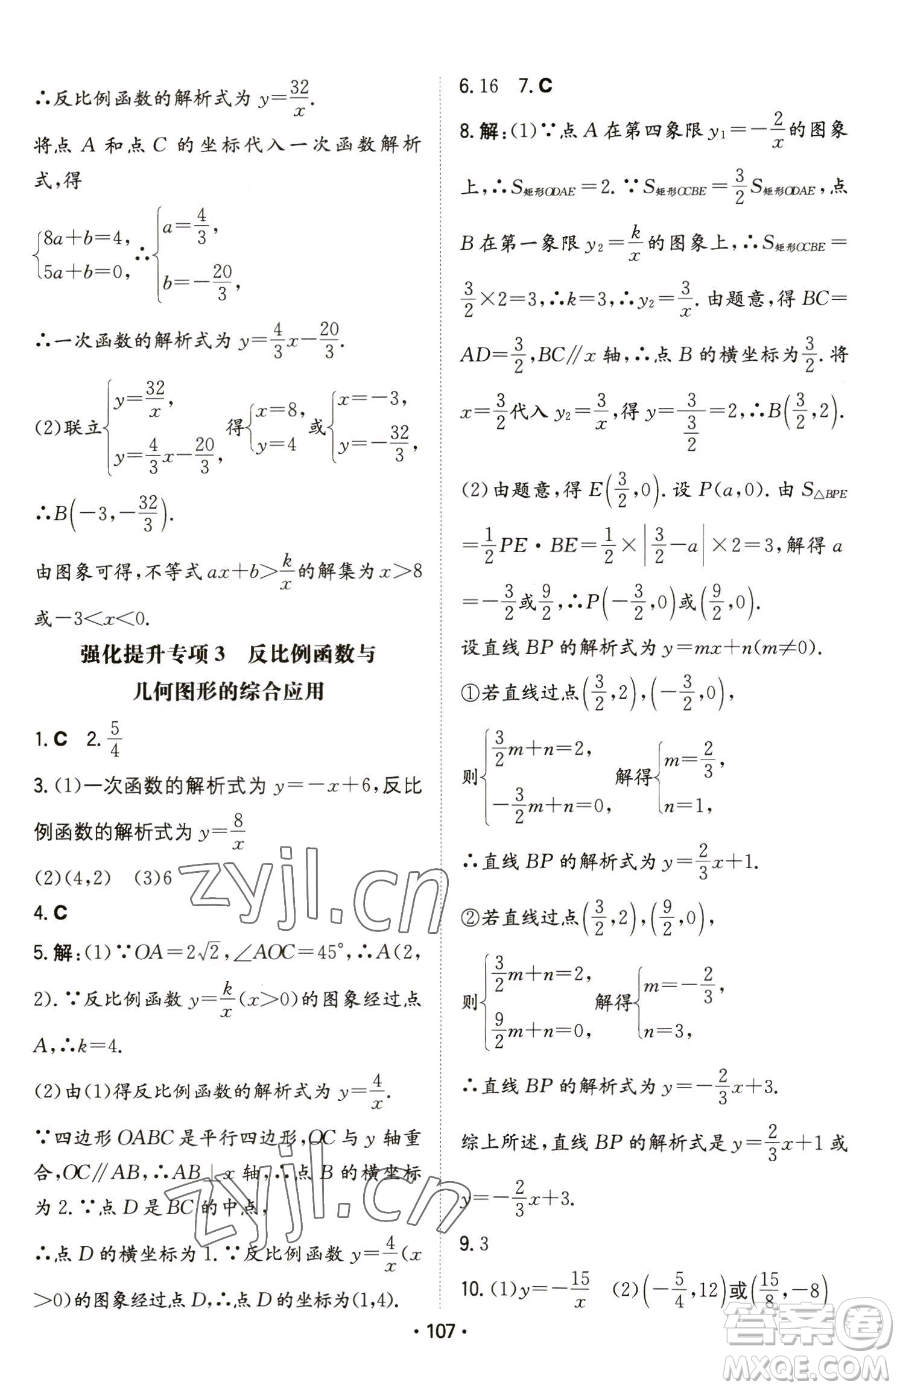 ∴反比例函数的解析式为 y=32/x.
将点 A 和点 C 的坐标代入一次函数解析
式,得
{8a+b=4, 5a+b=0, ∴{a=4/3, b=-20/3,
∴一次函数的解析式为 y=4/3x-20/3.
(2)联立{y=32/x, y=4/3x-20/3, 得{x=8, y=4 或{x=-3, y=-32/3,
∴B(-3,-32/3).
由图象可得,不等式 ax+b>k/x的解集为 x>8
或-3<x<0.
强化提升专项 3 反比例函数与
几何图形的综合应用
1. C 2. 5/4
3. (1)一次函数的解析式为 y=-x+6,反比
例函数的解析式为 y=8/x
(2)(4,2) (3)6
4. C
5. 解:(1)∵OA=2√2,∠AOC=45°,∴A(2,
2).∵反比例函数 y=k/x(x>0)的图象经过点
A,∴k=4.
(2)由(1)得反比例函数的解析式为 y=4/x.
∵四边形 OABC 是平行四边形,OC与 y 轴重
合,OC∥AB,∴AB⊥x 轴,∴点 B 的横坐标
为 2.∵点 D 是 BC 的中点,
∴点 D 的横坐标为 1.∵反比例函数 y=4/x(x
>0)的图象经过点 D,∴点 D 的坐标为(1,4).
6. 16 7. C
8. 解:(1)∵点 A 在第四象限 y₁=-2/x的图象
上,∴S矩形ODAE=2.∵S矩形OCBE=3/2S矩形ODAE,点
B 在第一象限 y₂=k/x的图象上,∴S矩形OCBE=
3/2×2=3,∴k=3,∴y₂=3/x.由题意,得 BC=
AD=3/2,BC∥x 轴,∴点 B 的横坐标为3/2.将
x=3/2代入 y₂=3/x,得 y=3/(3/2)=2,∴B(3/2,2).
(2)由题意,得 E(3/2,0).设 P(a,0).由 S△BPE
=1/2PE·BE=1/2×|3/2-a|×2=3,解得 a
=-3/2或9/2,∴P(-3/2,0)或(9/2,0).
设直线 BP 的解析式为 y=mx+n(m≠0).
①若直线过点(3/2,2),(-3/2,0),
则{3/2m+n=2, -3/2m+n=0, 解得{m=2/3, n=1,
∴直线 BP 的解析式为 y=2/3x+1.
②若直线过点(3/2,2),(9/2,0),
则{3/2m+n=2, 9/2m+n=0, 解得{m=-2/3, n=3,
∴直线 BP 的解析式为 y=-2/3x+3.
综上所述,直线 BP 的解析式是 y=2/3x+1 或
y=-2/3x+3.
9. 3
10. (1)y=-15/x (2)(-5/4,12)或(15/8,-8)
·107·
zyjl.cn
zyjl.cn
答案圈
MXQE.COM